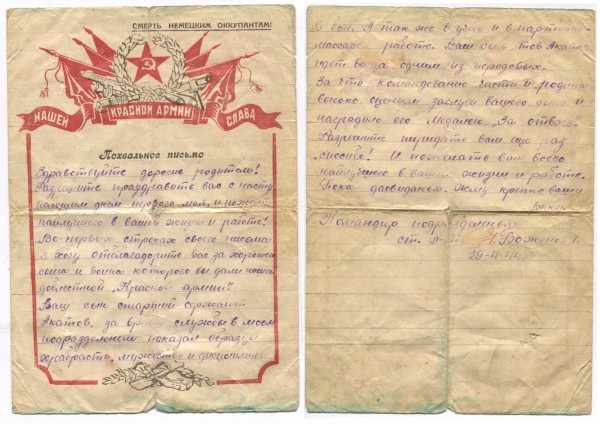 СМЕРТЬ НЕМЕЦКИМ ОККУПАНТАМ!
НАШЕЙ КРАСНОЙ АРМИИ СЛАВА
Похвальное письмо
Здравствуйте дорогие родители!
Разрешите поздравить вас с насту
пающим днем первого мая, и пожелать
наилучшего в вашей жизни и работе!
Во-первых строках своего письма
я хочу отблагодарить вас за хорошего
сына и воина которого вы дали нашей
доблестной "Красной армии".
Ваш сын старший сержант
Акатов, за время службы в моем
подразделении показал образцы
храбрости, мужества и дисциплины
А так же в учебе и в партийно-
массовой работе. Ваш сын тов Акатов
идет одним из передовых.
За что командование части и родина
высоко оценили заслуги вашего сына и
наградило его Медалью "За отвагу".
Разрешите передать вам еще раз
"спасибо"! И пожелать вам всего
наилучшего в вашей жизни и работе.
Пока досвидания. Жму крепко ваши
руки.
Командир подразделения
ст. л-т
29-4-44